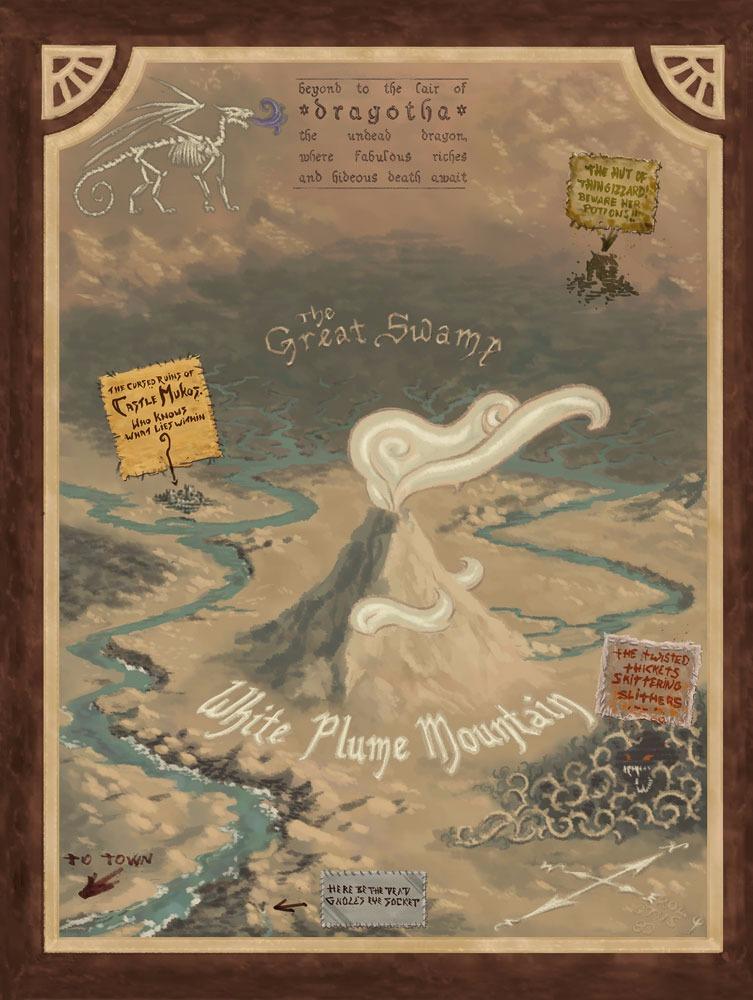 beyond to the lair of
*dragotha*
the undead dragon,
where fabulous riches
and hideous death await
THE HUT OF
THINGIZZARD!
BEWARE HER
POTIONS!!
The
Great Swamp
THE CURSED RUINS OF
CASTLE MUKOS.
WHO KNOWS
WHAT LIES WITHIN
?
THE TWISTED
THICKETS
SKITTERING
SLITHERS
White Plume Mountain
TO TOWN
HERE BE THE DEAD
GNOLL'S EYE SOCKET